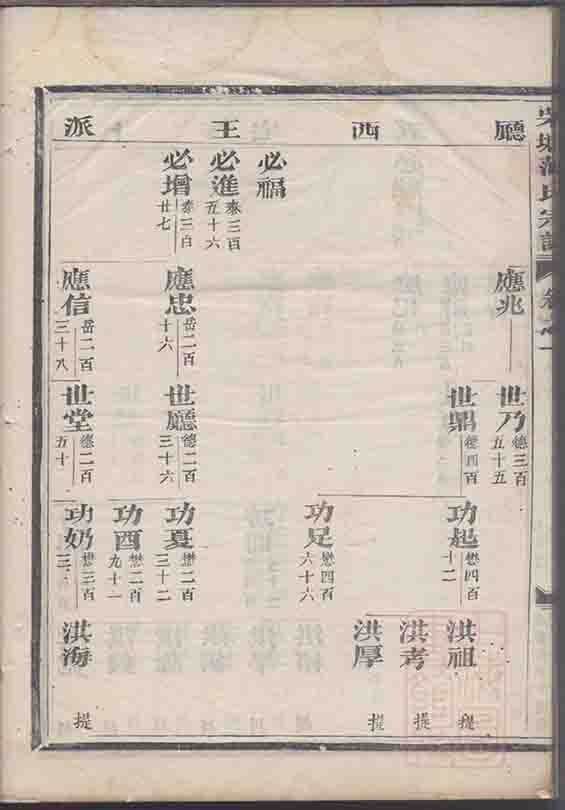 氏宗譜
卷之一
廳西王派
必福
必進 泰三百五十六
必增 泰三百廿七
應兆
應忠 岳二百十六
應信 岳二百三十八
世乃 德三百五十五
世鼎 德四百
世廳 德二百三十六
世堂 德二百五十
功起 懋四百十二
功足 懋四百六十六
功夏 懋二百三十二
功酉 懋二百九十一
功奶 懋三百三
洪祖 提
洪考 提
洪厚 提
洪海 提